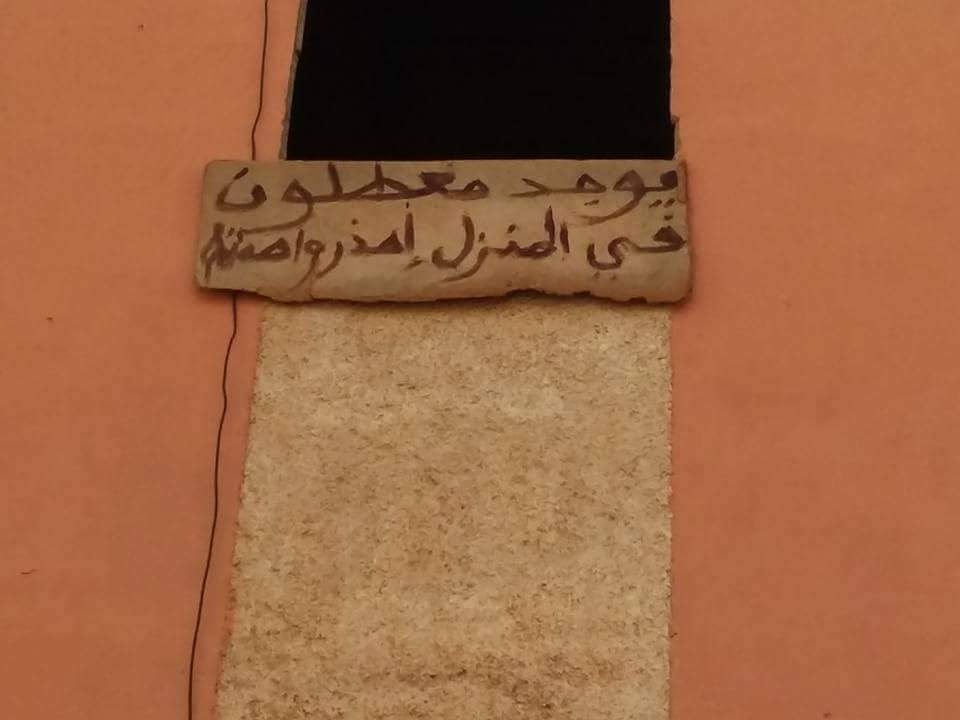 يوجد معطلون
في المنزل إحذروا صمتهم